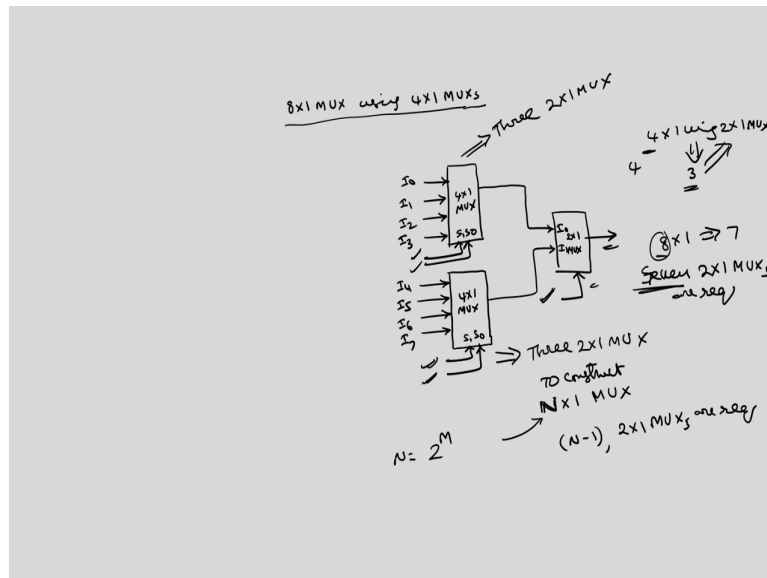 8x1 MUX using 4x1 MUXs
Three 2x1 MUX
4x1 using 2x1 MUX
4
3
I0
I1
I2
I3
4x1
MUX
S1 S0
I0
2x1
I1 MUX
8x1 ⇒ 7
Seven 2x1 MUXs
are req
I4
I5
I6
I7
4x1
MUX
S1 S0
Three 2x1 MUX
TO construct
Nx1 MUX
(N-1), 2x1 MUXs are req
N= 2^M